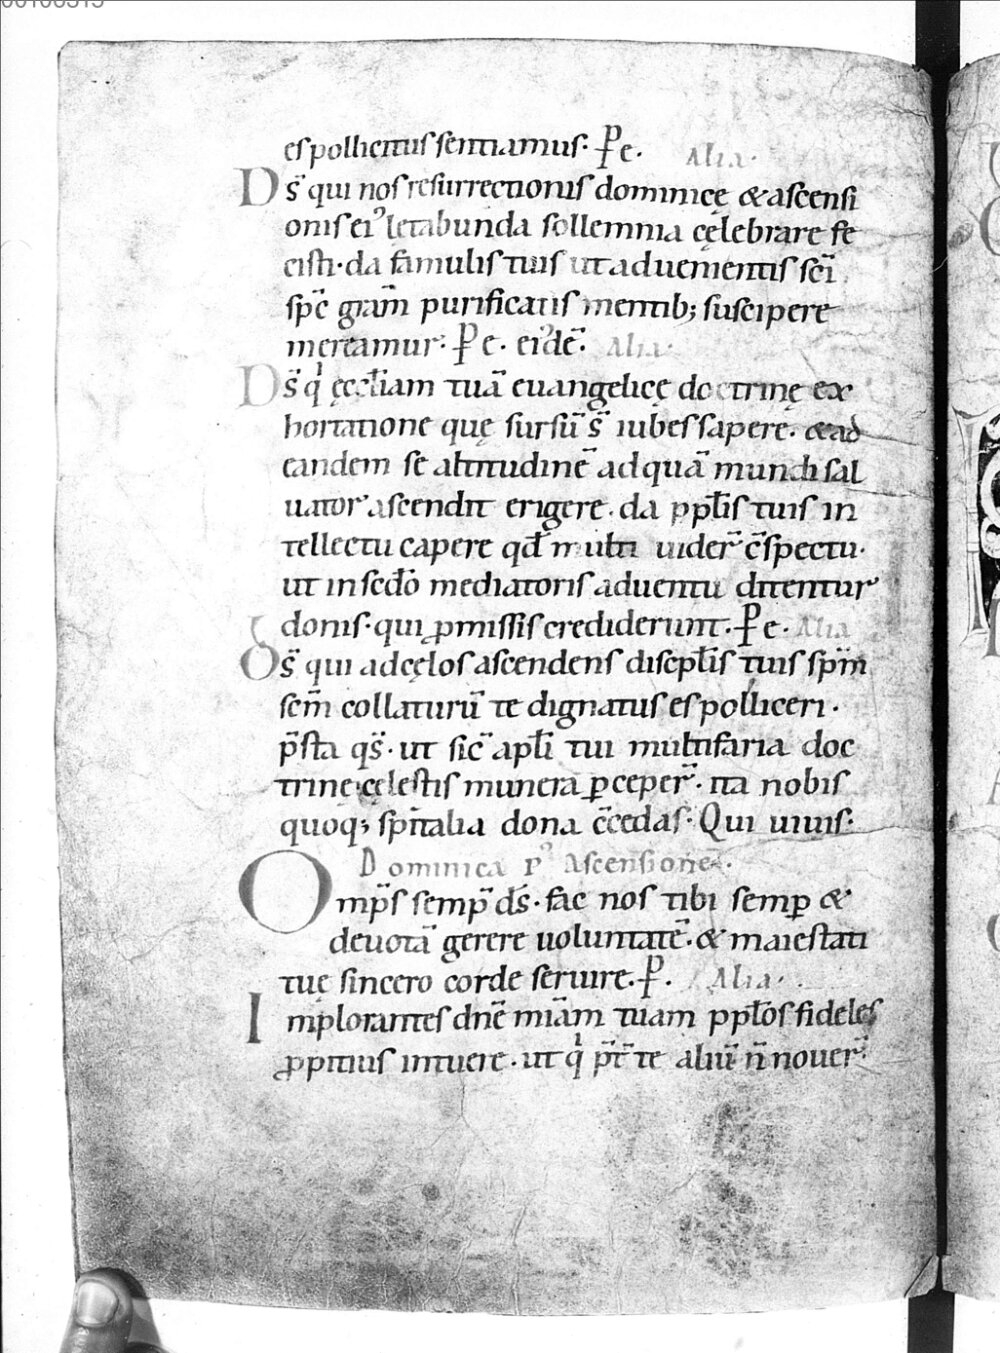 es pollicitus sentiamus. P̄e. Alia.
Ds̄ qui nos resurrectionis dominicę & ascensi
onis ei᾿ letabunda sollemnia cęlebrare fe
cisti. da famulis tuis ut aduenientis sc̄i
sp̄c gram̄ purificatis mentib; suscipere
mereamur. P̄e. eide᷄. Alia.
Ds̄ qͥ ęccl̄iam tuā euangelicę doctrinę ex
hortatione quę sursū s̄ iubes sapere. & ad
eandem se altitudinē ad quā mundi sal
uator ascendit erigere. da ppl̄is tuis in
tellectu capere qd̄ multi uider̄ c̄spectu.
ut in secd̄o mediatoris aduentu ditentur
donis. qui ꝓmissis crediderunt. P̄e. Alia
Ds̄ qui ad cęlos ascendens discipl̄is tuis sp̄m
sc̄m collaturū te dignatus es polliceri.
p̄sta qs̄. ut sic̄ apl̄i tui multifaria doc
trinę cęlestis munera ꝑceper̄. ita nobis
quoq; sp̄italia dona c̄cedas. Qui uiuis.
Dominica p᾿ Ascensionē.
Omp̄s semp̄ ds̄. fac nos tibi semꝑ &
deuotā gerere uoluntatē. & maiestati
tuę sincero corde seruire. P̄. Alia.
Implorantes dn̄e miām tuam ppl̄os fideles
ꝓpitius intuere. ut qͥ p̄t̄ te aliū n̄ nouer̄.